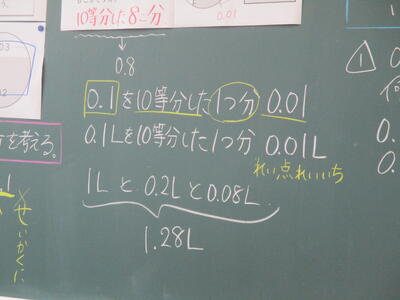 10等分した8こ分
0.01
0.8
0.1を10等分した1つ分 0.01
0.1Lを10等分した1つ分 0.01L
れい点れいいち
1Lと0.2Lと0.08L
1.28L
を考える。
せいかくに
0.3
0.2
1
0.
0.